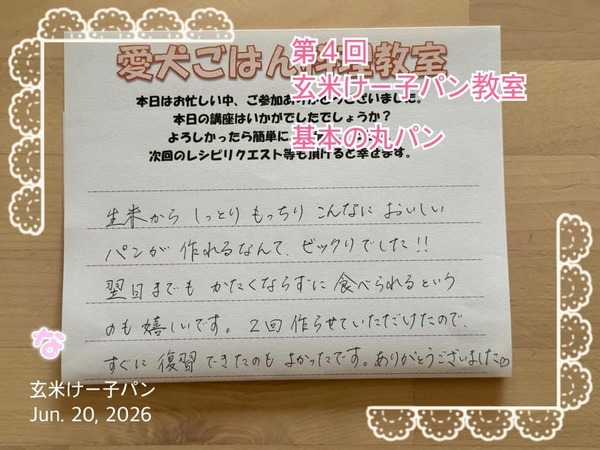 愛犬ごはん料理教室
第４回
玄米けー子パン教室
基本の丸パン
本日はお忙しい中、ご参加ありがとうございました。
本日の講座はいかがでしたでしょうか？
よろしかったら簡単に
次回のレシピリクエスト等も頂けると幸せます。
生米から しっとり もっちり こんなに おいしい
パンが 作れるなんて、ビックリでした!!
翌日までも かたくならずに 食べられるという
のも 嬉しいです。2回 作らせていただけたので、
すぐに 復習 できたのも よかったです。ありがとうございました♡
な
玄米けー子パン
Jun. 20, 2026